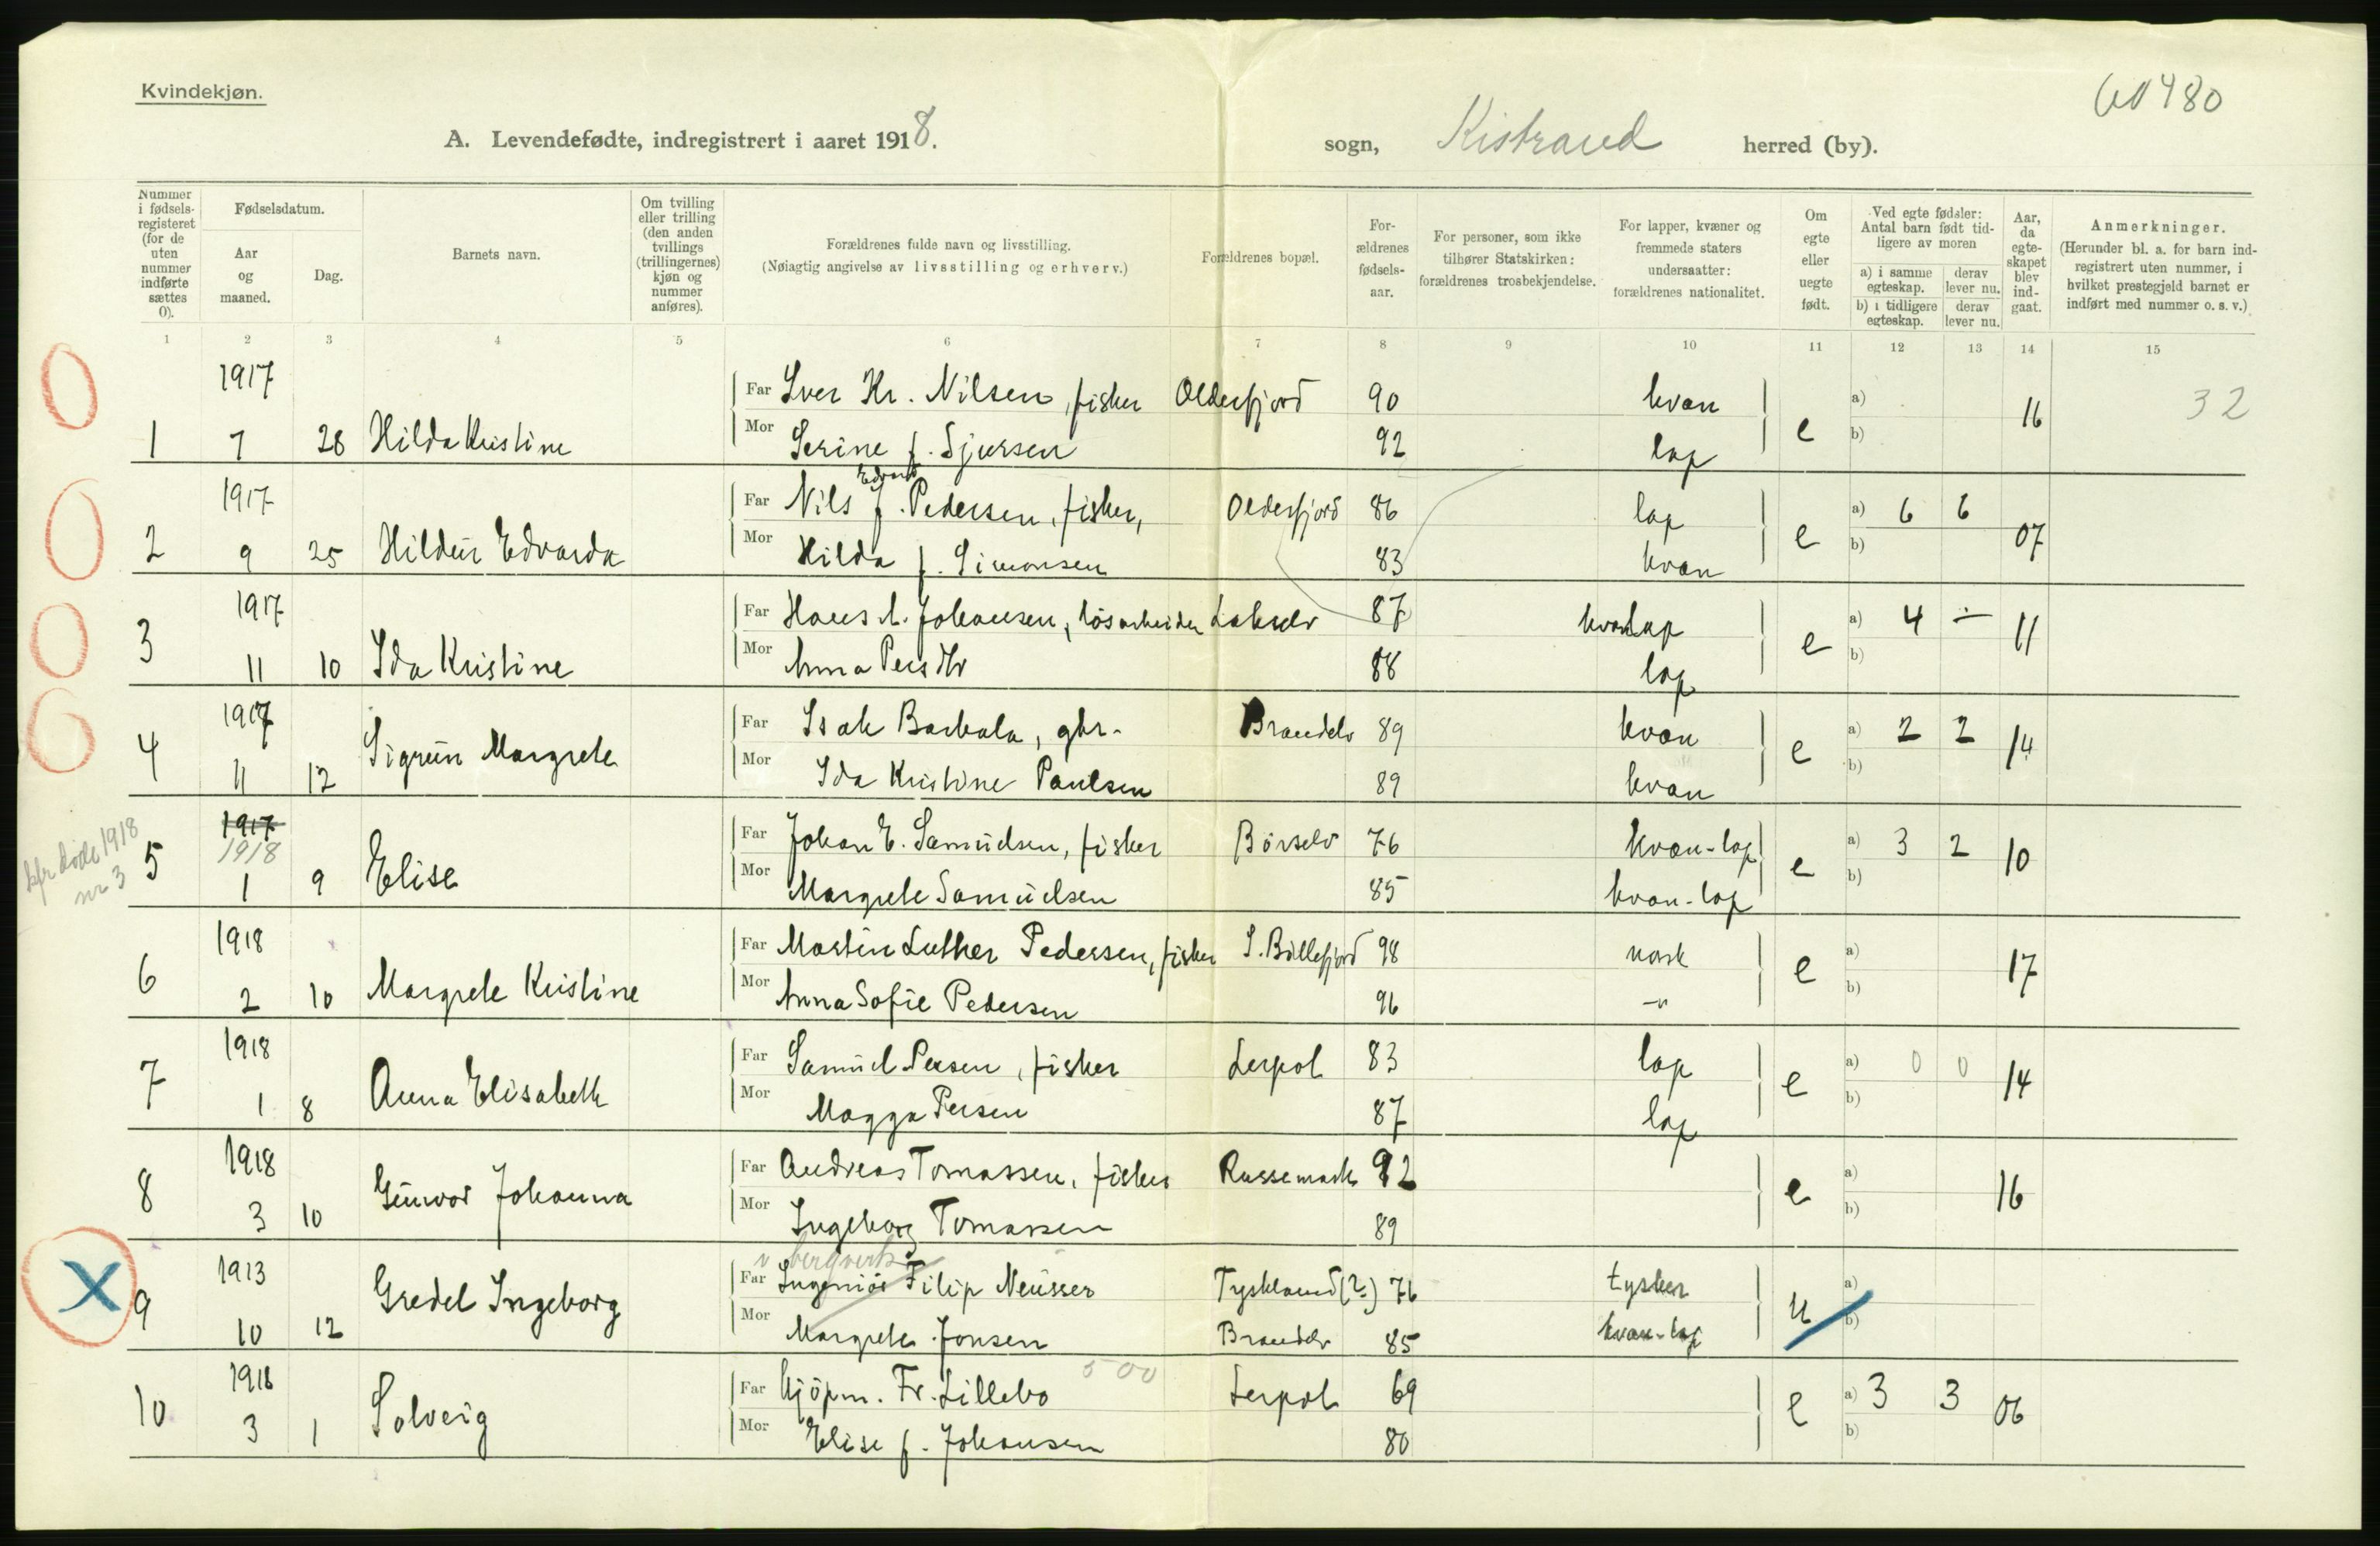 Kvindekjøn.
A. Levendefødte, indregistrert i aaret 1918.
sogn, Kistrand herred (by).
Nummer i fødsels-registeret (for de uten nummer indførte sættes 0).
Fødselsdatum.
Aar og maaned.
Dag.
Barnets navn.
Om tvilling eller trilling (den anden tvillings (trillingernes) kjøn og nummer anføres).
Forældrenes fulde navn og livsstilling.
(Nøiagtig angivelse av livsstilling og erhverv.)
Forældrenes bopæl.
For-ældrenes fødsels-aar.
For personer, som ikke tilhører Statskirken: forældrenes trosbekjendelse.
For lapper, kvæner og fremmede staters undersaatter: forældrenes nationalitet.
Om egte eller uegte født.
Ved egte fødsler: Antal barn født tid-ligere av moren
a) i samme egteskap. derav lever nu.
b) i tidligere egteskap. derav lever nu.
Aar, da egte-skapet blev ind-gaat.
Anmerkninger.
(Herunder bl. a. for barn ind-registrert uten nummer, i hvilket prestegjeld barnet er indført med nummer o. s. v.)
1 2 3 4 5 6 7 8 9 10 11 12 13 14 15
0
1917
Far Iver Kr. Nilsen, fisker Olderfjord 90 kvæn a) 16 32
1 7 28 Hilda Kristine
Mor Serine f. Sjursen 92 lap e b)
0
1917
Edvard
Far Nils J. Pedersen, fisker, Olderfjord 86 lap a) 6 6 07
2 9 25 Hildur Edvarda
Mor Hilda f. Simonsen 83 kvæn e b)
0
1917
Far Hans A. Johansen, løsarbeider Lakselv 87 kvænlap a) 4 - 11
3 11 10 Ida Kristine
Mor Anna Persdtr 88 lap e b)
0
1917
Far Isak Barbala, gbr. Brandelv 89 kvæn a) 2 2 14
4 11 12 Sigrun Margrete
Mor Ida Kristine Paulsen 89 kvæn e b)
kfr døde 1918 nr 3
1917
1918
Far Johan E. Samuelsen, fisker Børselv 76 kvæn-lap a) 3 2 10
5 1 9 Elise
Mor Margrete Samuelsen 85 kvæn-lap e b)
1918
Far Martin Luther Pedersen, fisker S. Billefjord 98 norsk a) 17
6 2 10 Margrete Kristine
Mor Anna Sofie Pedersen 96 -"- e b)
1918
Far Samuel Persen, fisker Lerpol 83 lap a) 0 0 14
7 1 8 Anna Elisabeth
Mor Magga Persen 87 lap e b)
1918
Far Andreas Tomassen, fisker Russemark 92 a) 16
8 3 10 Gunvor Johanna
Mor Ingeborg Tomassen 89 e b)
X
1913
v bergverk
Far Ingeniør Filip Neusser Tyskland (?) 76 tysker a)
9 10 12 Gredel Ingeborg
Mor Margrete Jonsen Brandelv 85 kvæn-lap u b)
500
1918
Far Kjøpm. Fr. Lillebo Lerpol 69 a) 3 3 06
10 3 1 Solveig
Mor Elise f. Johansen 80 e b)